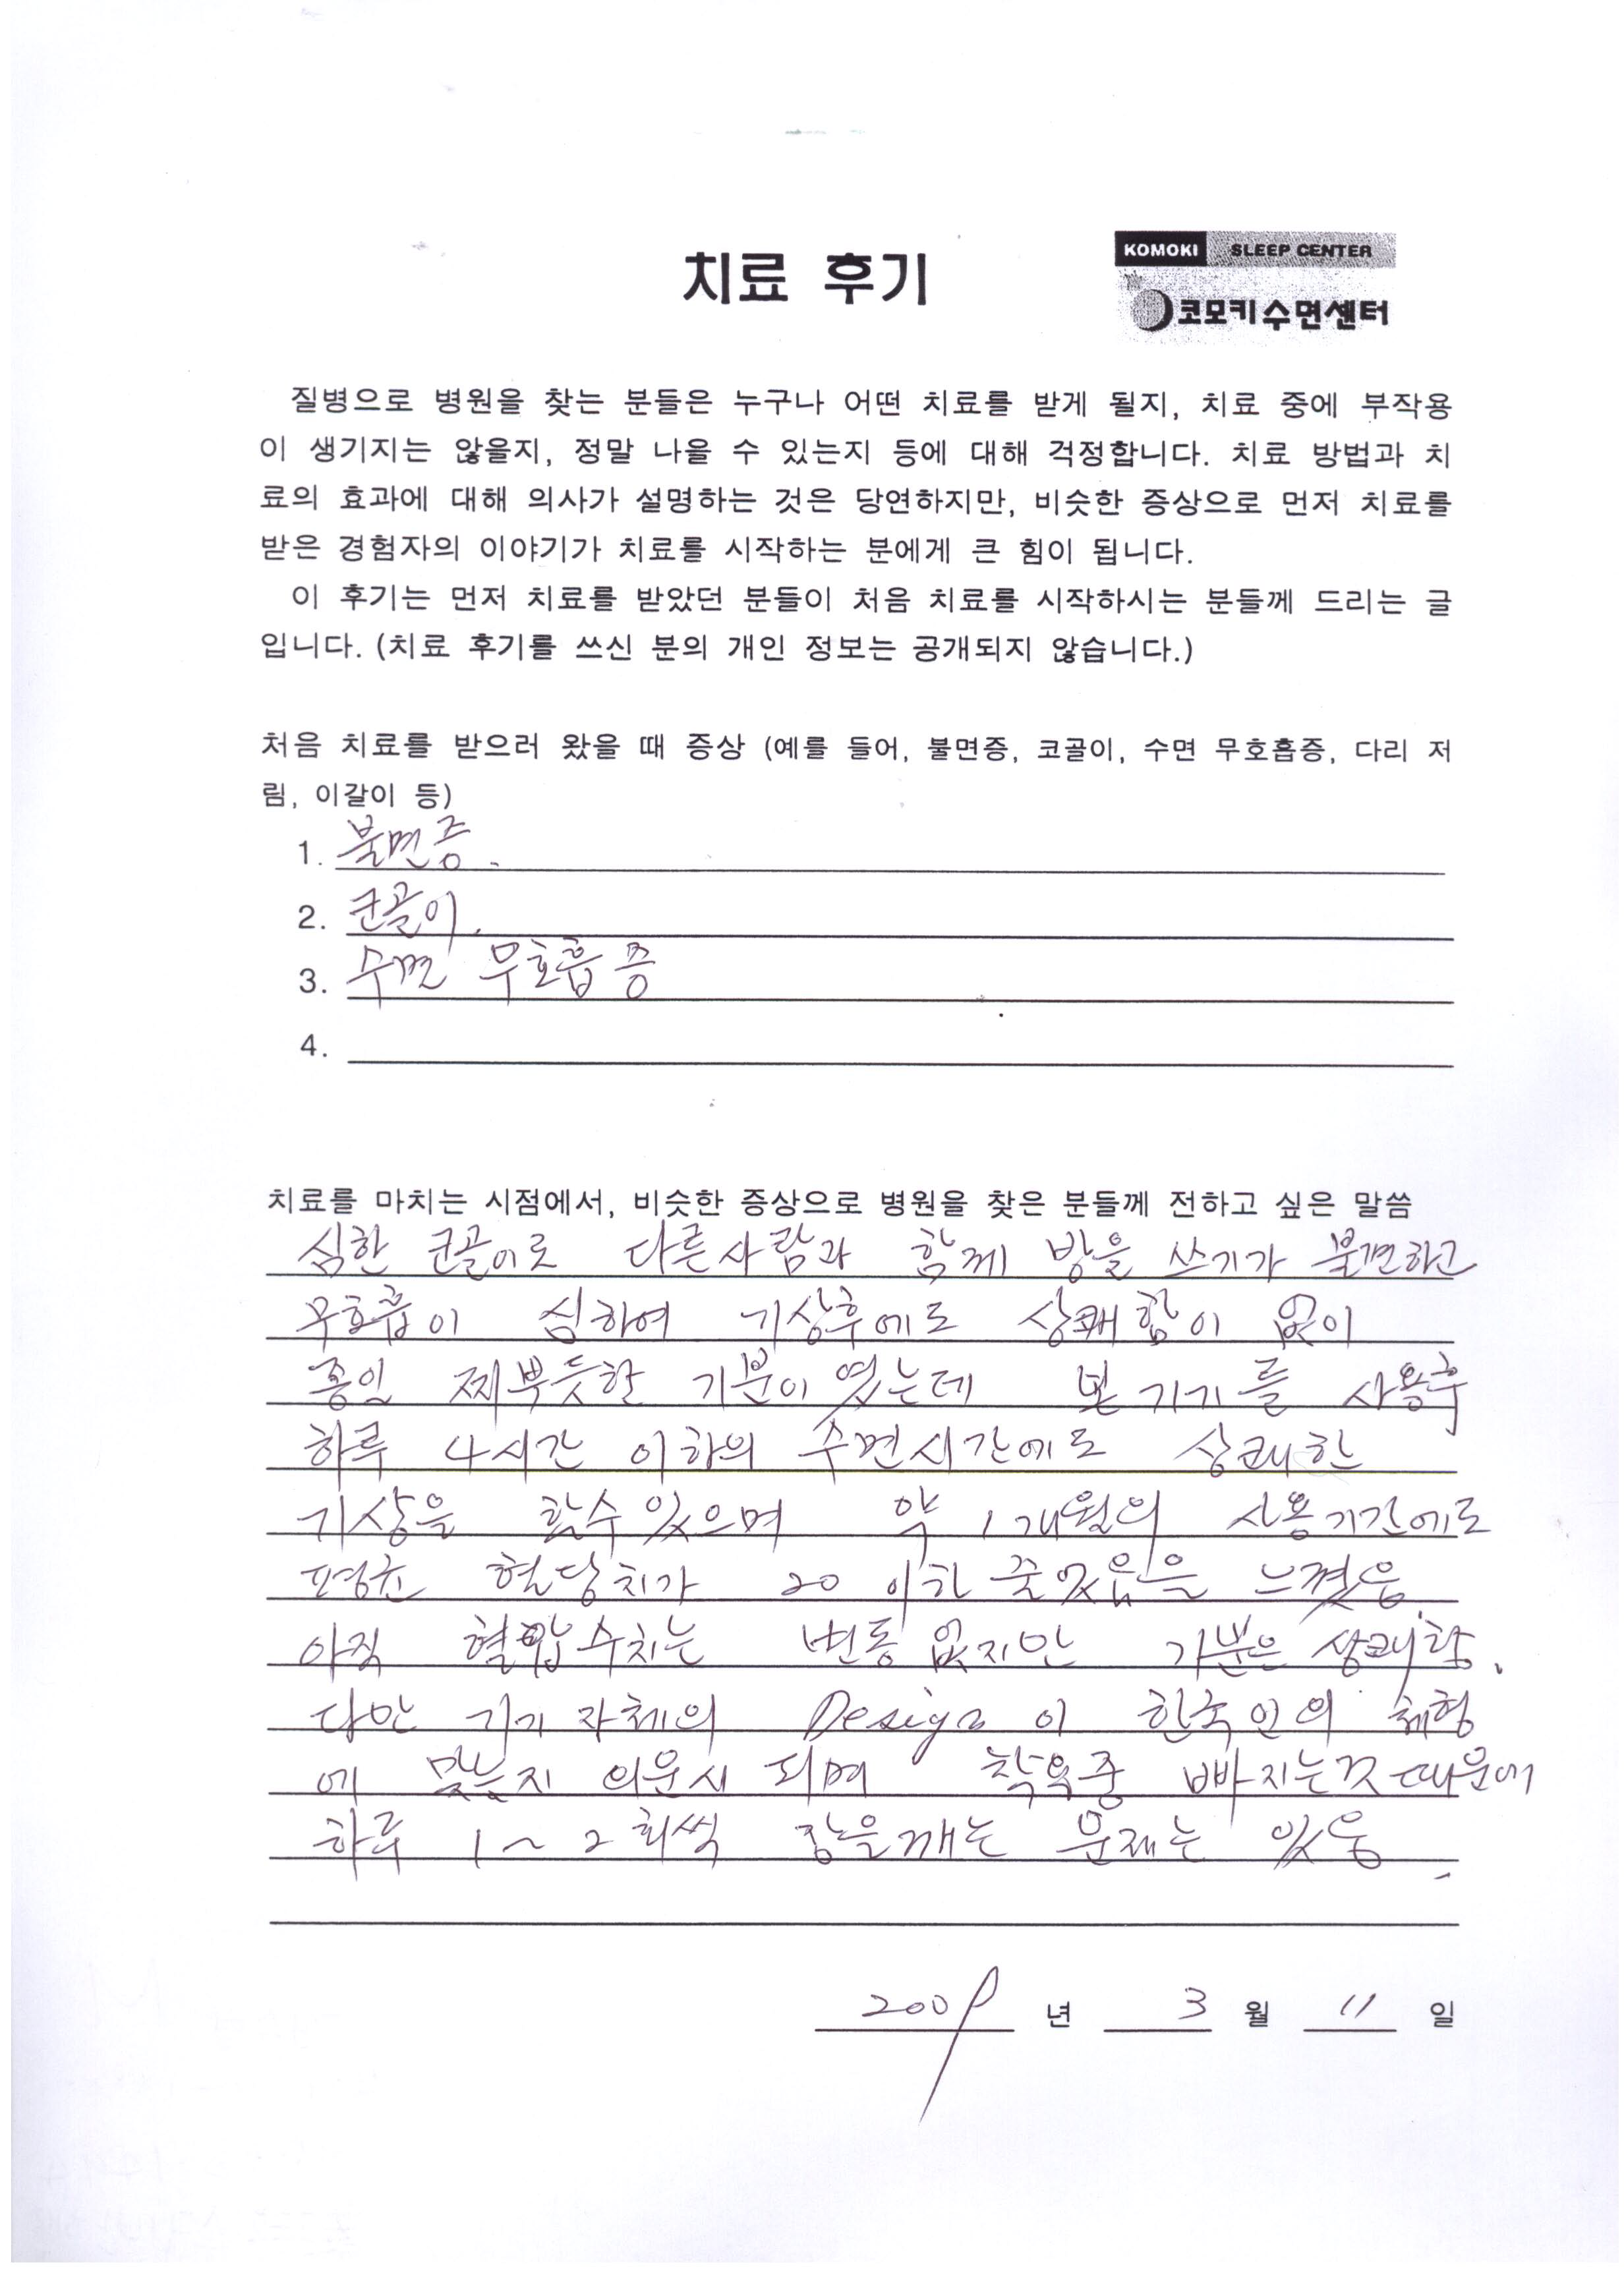 치료 후기
KOMOKI SLEEP CENTER
코모키수면센터
질병으로 병원을 찾는 분들은 누구나 어떤 치료를 받게 될지, 치료 중에 부작용
이 생기지는 않을지, 정말 나을 수 있는지 등에 대해 걱정합니다. 치료 방법과 치
료의 효과에 대해 의사가 설명하는 것은 당연하지만, 비슷한 증상으로 먼저 치료를
받은 경험자의 이야기가 치료를 시작하는 분에게 큰 힘이 됩니다.
이 후기는 먼저 치료를 받았던 분들이 처음 치료를 시작하시는 분들께 드리는 글
입니다. (치료 후기를 쓰신 분의 개인 정보는 공개되지 않습니다.)
처음 치료를 받으러 왔을 때 증상 (예를 들어, 불면증, 코골이, 수면 무호흡증, 다리 저
림, 이갈이 등)
1. 불면증.
2. 코골이.
3. 수면 무호흡증
4.
치료를 마치는 시점에서, 비슷한 증상으로 병원을 찾은 분들께 전하고 싶은 말씀
심한 코골이로 다른사람과 함께 방을 쓰기가 불편하고
무호흡이 심하여 기상후에도 상쾌함이 없이
종일 찌뿌듯한 기분이 였는데 본 기기를 사용후
하루 4시간 이하의 수면시간에도 상쾌한
기상을 할수있으며 약 1개월의 사용기간에도
평균 혈당치가 20 이하 줄었음을 느꼈음.
아직 혈압수치는 변동 없지만 기분은 상쾌함.
다만 기기 자체의 Design이 한국인의 체형
에 맞는지 의문시 되며 착용중 빠지는것 때문에
하루 1~2회씩 잠을깨는 문제는 있음.
2009 년 3 월 11 일